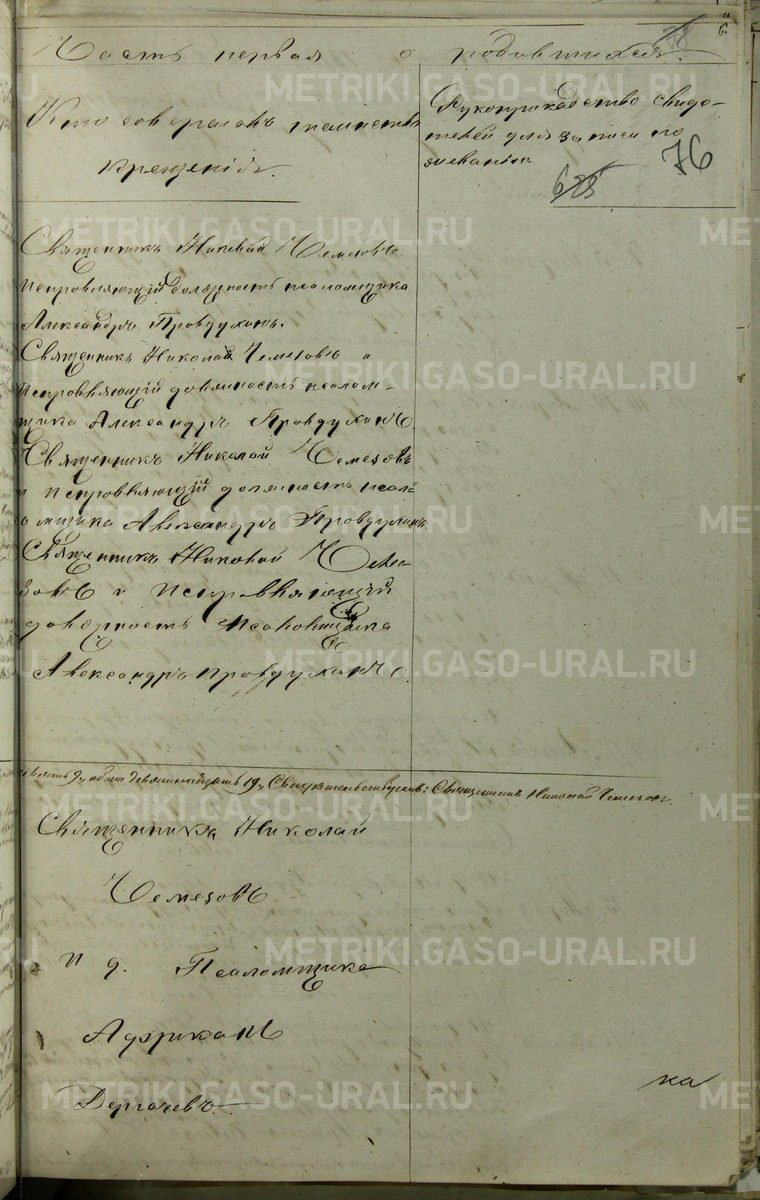 Часть первая о родившихся.
78
6
Кто совершалъ таинство
крещенія.
Рукоприкладство свиде-
телей для записи по
желанію
628
76
Священникъ Николай Чемезовъ
исправляющій должность псаломщика
Александръ Правдухинъ.
Священникъ Николай Чемезовъ и
исправляющій должность псалом-
щика Александръ Правдухинъ
Священникъ Николай Чемезовъ
и исправляющій должность псал-
омщика Александръ Правдухинъ
Священникъ Николай Чеме
зовъ и исправляющій
должность псаломщика
Александръ Правдухинъ
девять 9, обоего девятнадцать 19, Свидетельствуемъ: Священникъ Николай Чемезовъ.
Священникъ Николай
Чемезовъ
и д. Псаломщика
Африканъ
Дергачевъ
ка
METRIKI.GASO-URAL.RU